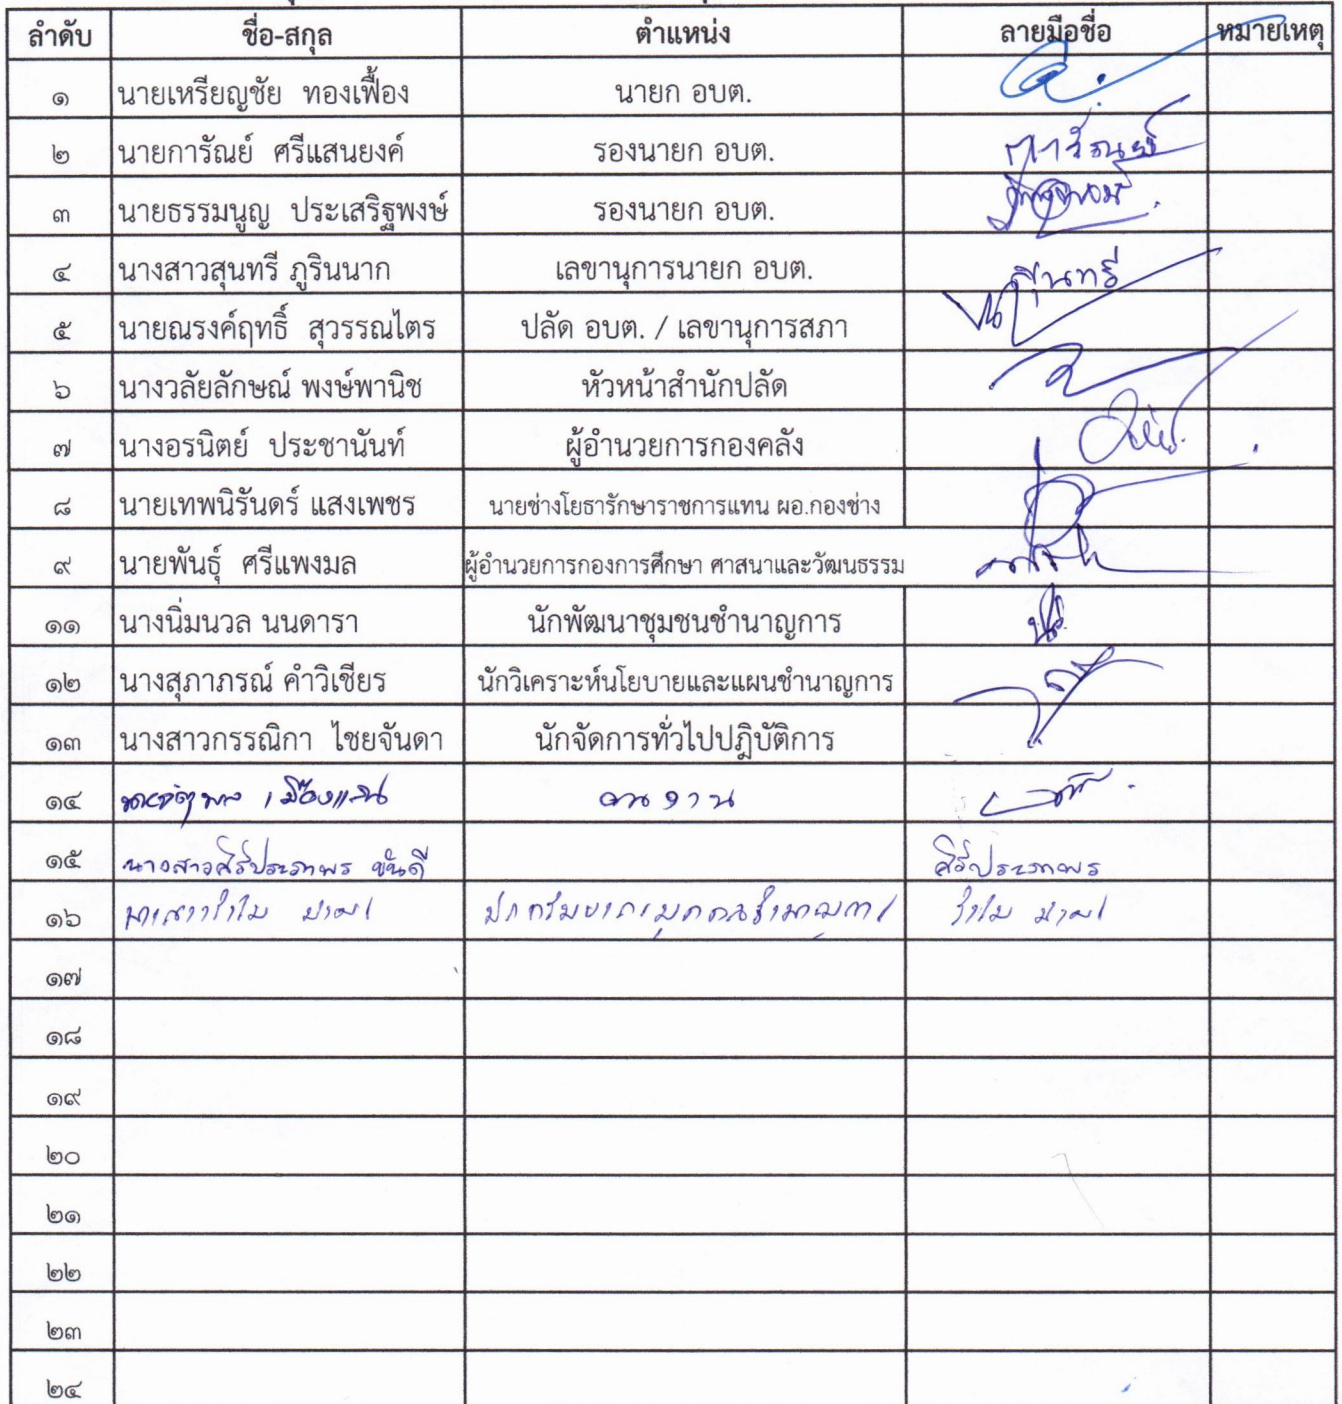 ลำดับ ชื่อ-สกุล ตำแหน่ง ลายมือชื่อ หมายเหตุ
๑ นายเหรียญชัย ทองเฟื้อง นายก อบต.
๒ นายการัณย์ ศรีแสนยงค์ รองนายก อบต. การัณย์
๓ นายธรรมนูญ ประเสริฐพงษ์ รองนายก อบต.
๔ นางสาวสุนทรี ภูรินนาก เลขานุการนายก อบต. สุนทรี
๕ นายณรงค์ฤทธิ์ สุวรรณไตร ปลัด อบต. / เลขานุการสภา
๖ นางวลัยลักษณ์ พงษ์พานิช หัวหน้าสำนักปลัด
๗ นางอรนิตย์ ประชานันท์ ผู้อำนวยการกองคลัง
๘ นายเทพนิรันดร์ แสงเพชร นายช่างโยธารักษาราชการแทน ผอ.กองช่าง
๙ นายพันธุ์ ศรีแพงมล ผู้อำนวยการกองการศึกษา ศาสนาและวัฒนธรรม
๑๑ นางนิ่มนวล นนดารา นักพัฒนาชุมชนชำนาญการ
๑๒ นางสุภาภรณ์ คำวิเชียร นักวิเคราะห์นโยบายและแผนชำนาญการ
๑๓ นางสาวกรรณิกา ไชยจันดา นักจัดการทั่วไปปฏิบัติการ
๑๔ คนงาน
๑๕ นางสาวศิริประภาพร ขันดี ศิริประภาพร
๑๖
๑๗
๑๘
๑๙
๒๐
๒๑
๒๒
๒๓
๒๔